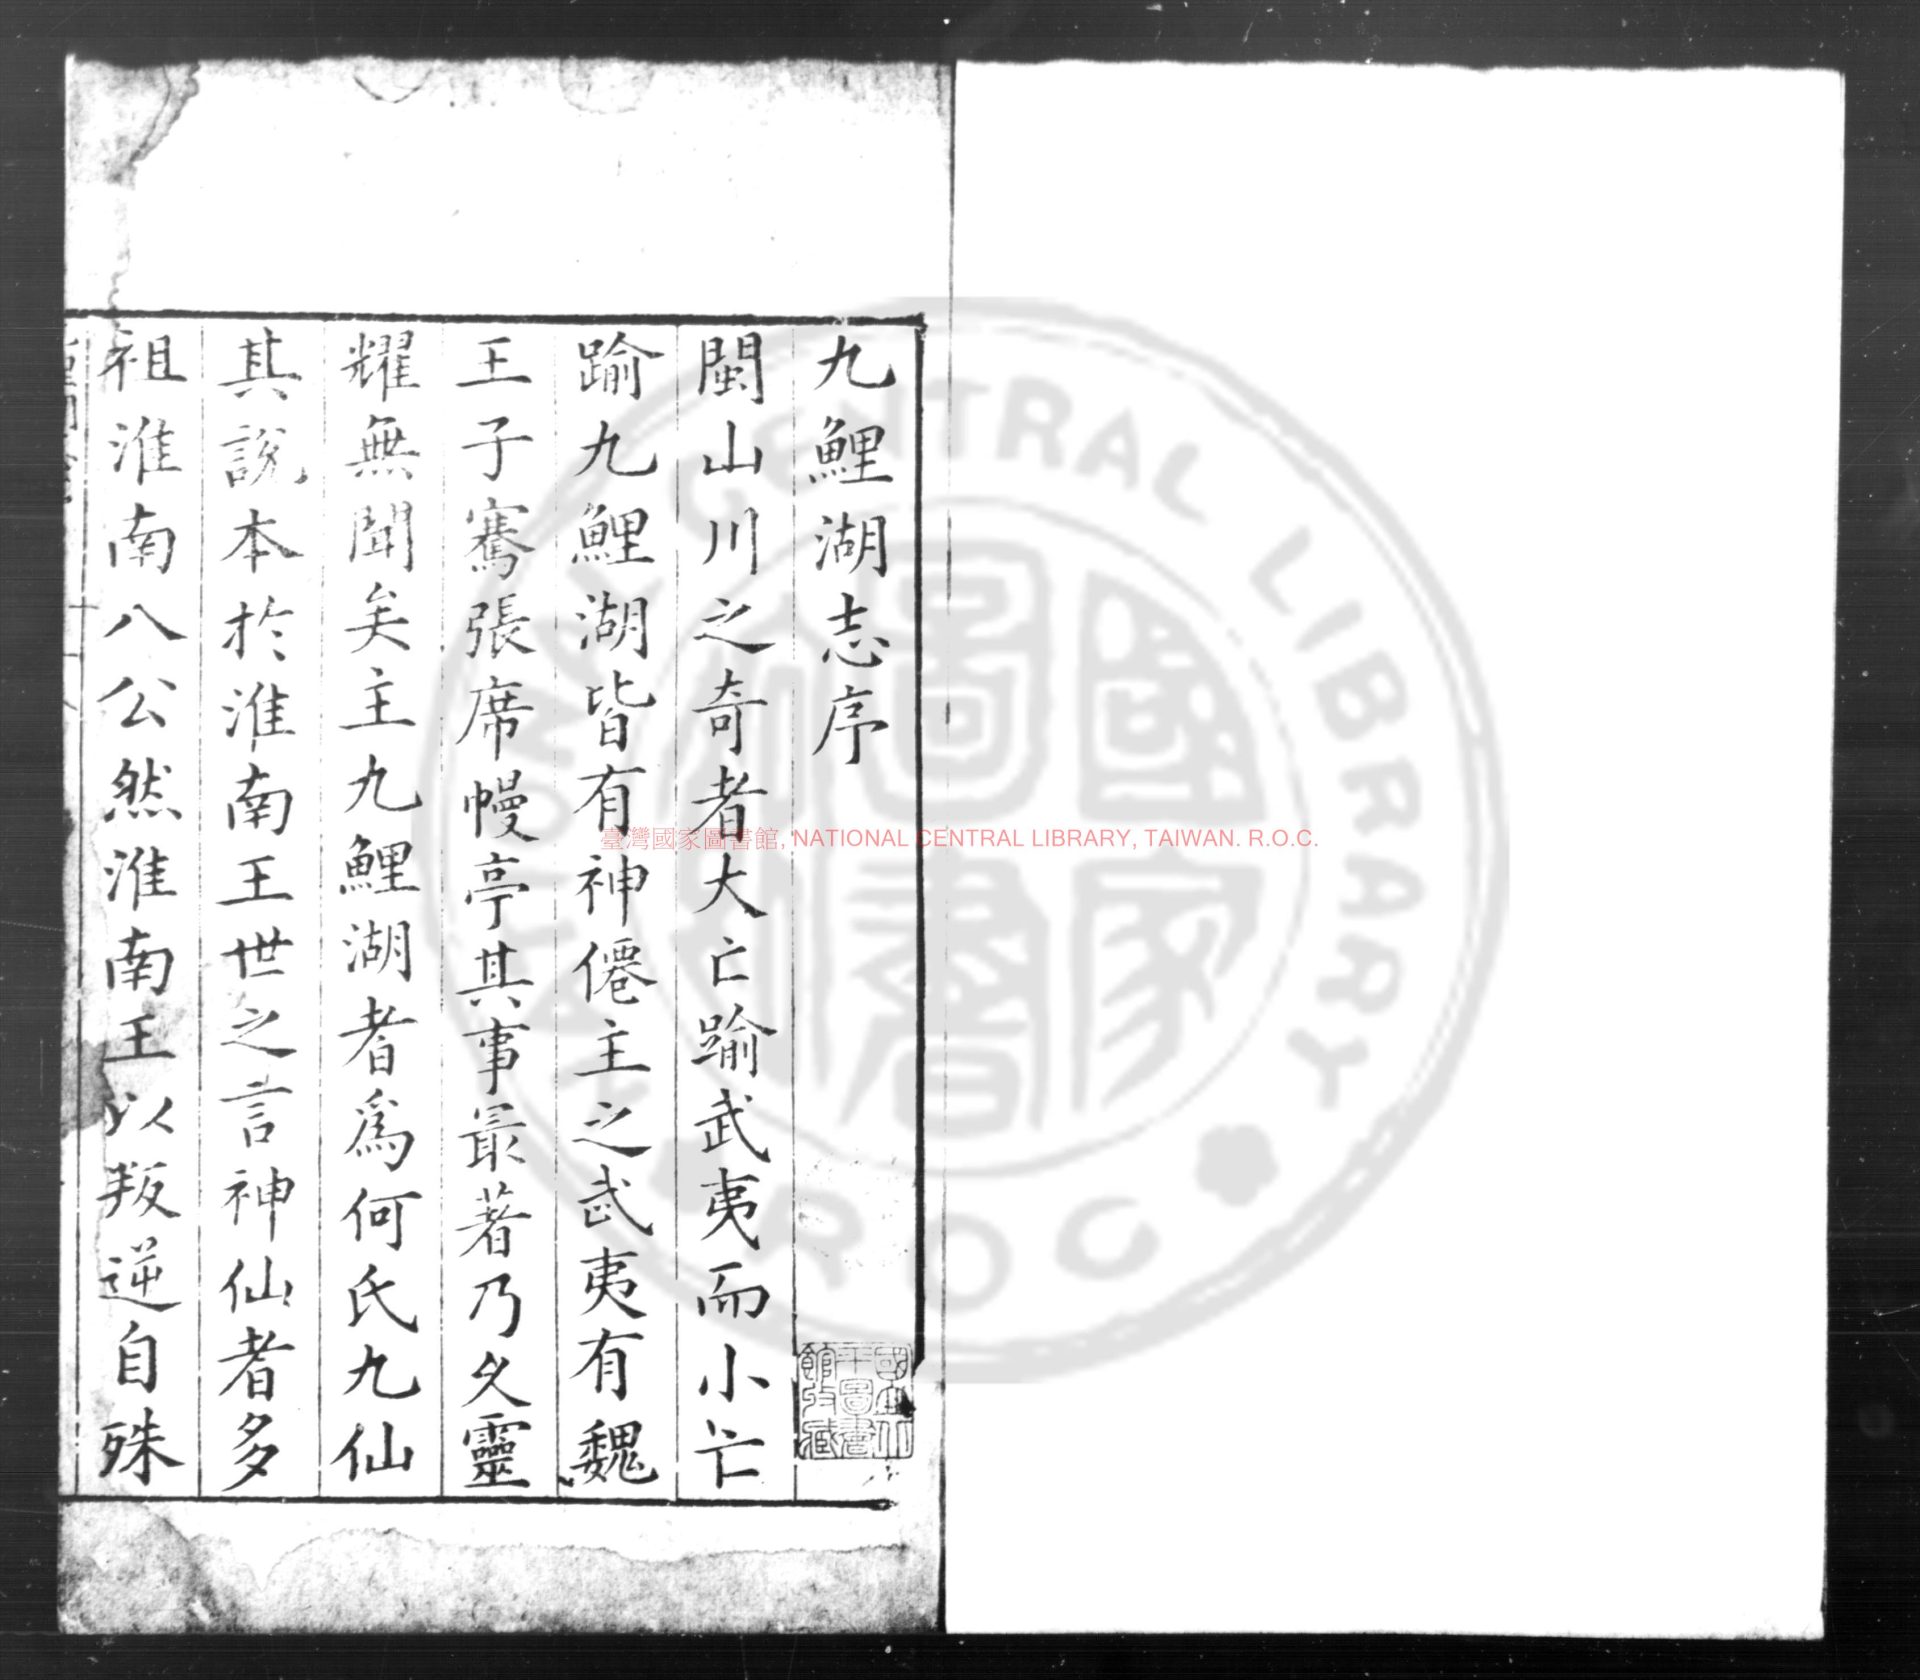 九鯉湖志序
閩山川之奇者大亡踰武夷而小亡
踰九鯉湖皆有神僊主之武夷有魏
王子騫張席幔亭其事最著乃久靈
耀無聞矣主九鯉湖者爲何氏九仙
其說本於淮南王世之言神仙者多
祖淮南八公然淮南王以叛逆自殊
國立北
平圖書
館收藏
臺灣國家圖書館, NATIONAL CENTRAL LIBRARY, TAIWAN. R.O.C.
國家圖書
NATIONAL CENTRAL LIBRARY
ROC